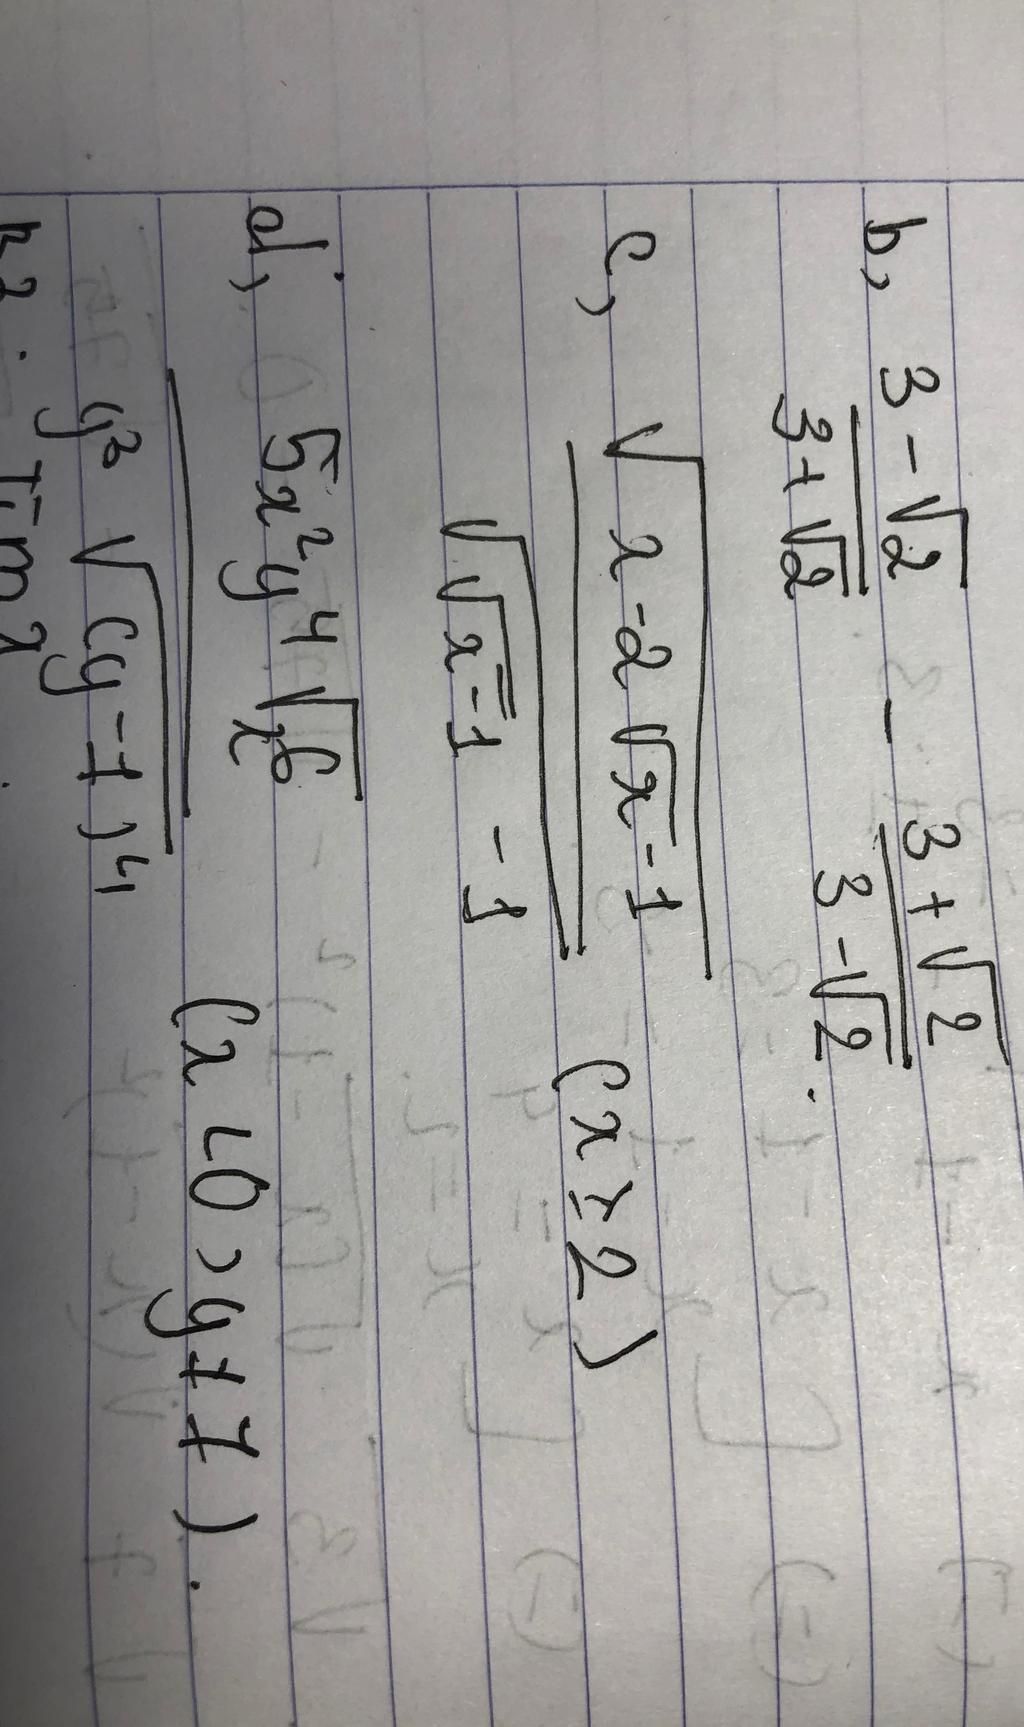 b, 3 - √2 / 3 + √2 - 3 + √2 / 3 - √2.
c, √x - 2√x - 1 / √√x - 1 - 1 (x ≥ 2)
d, 5x²y⁴√x⁶ / y³√(y - 1)⁴ (x < 0, y ≠ 1).